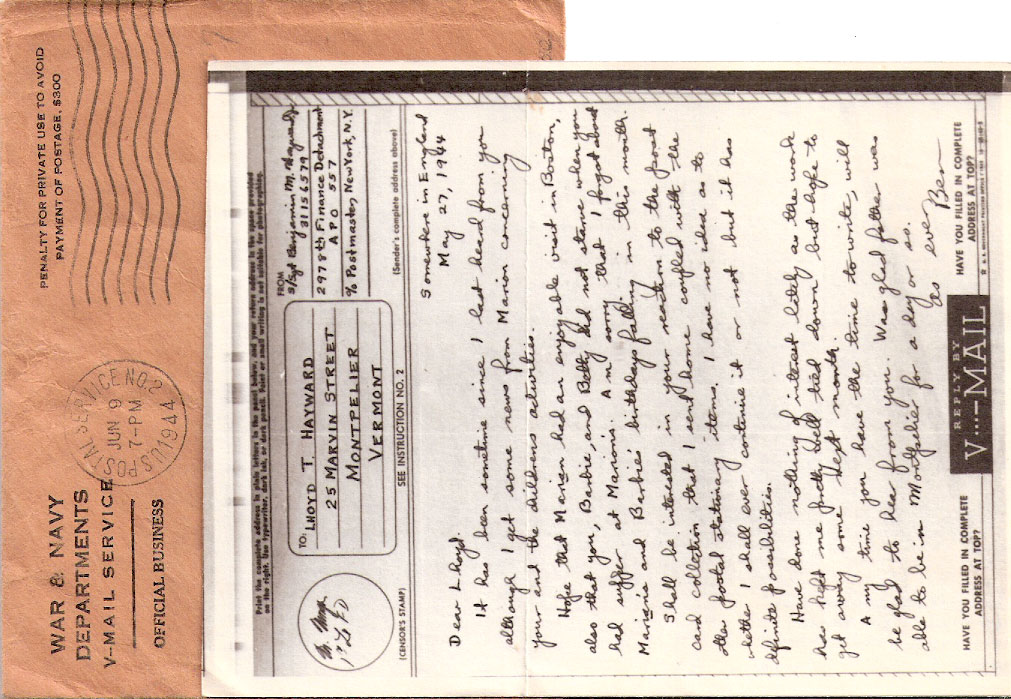 PENALTY FOR PRIVATE USE TO AVOID
PAYMENT OF POSTAGE, $300
U.S. POSTAL SERVICE NO. 2
JUN 9
7-PM
1944
WAR & NAVY
DEPARTMENTS
V-MAIL SERVICE
OFFICIAL BUSINESS
Print the complete address in plain letters in the panel below, and your return address in the space provided
on the right. Use typewriter, dark ink, or dark pencil. Faint or small writing is not suitable for photographing.
TO:
LHOYD T. HAYWARD
25 MARVIN STREET
MONTPELIER
VERMONT
FROM
S/Sgt Benjamin M. Hayward Jr.
31156379
2978th Finance Detachment
APO 557
% Postmaster, New York, N.Y.
(CENSOR'S STAMP)
SEE INSTRUCTION NO. 2
(Sender's complete address above)
Somewhere in England
May 27, 1944
Dear Lhoyd
It has been sometime since I last heard from you
although I get some news from Marion concerning
your and the childrens activities.
Hope that Marion had an enjoyable visit in Boston,
also that you, Barbie, and Betty did not starve when you
had supper at Marions. Am sorry that I forgot about
Marion's and Barbies' birthdays falling in this month.
Shall be interested in your reaction to the post
card collection that I sent home coupled with the
other postal stationary items. I have no idea as to
whether I shall ever continue it or not but it has
definite possibilities.
Have done nothing of interest lately as the work
has kept me pretty well tied down but hope to
get away some next month.
Any time you have the time to write, will
be glad to hear from you. Was glad father was
able to be in Montpelier for a day or so.
As ever
Ben
HAVE YOU FILLED IN COMPLETE
ADDRESS AT TOP?
REPLY BY
V···—MAIL
HAVE YOU FILLED IN COMPLETE
ADDRESS AT TOP?